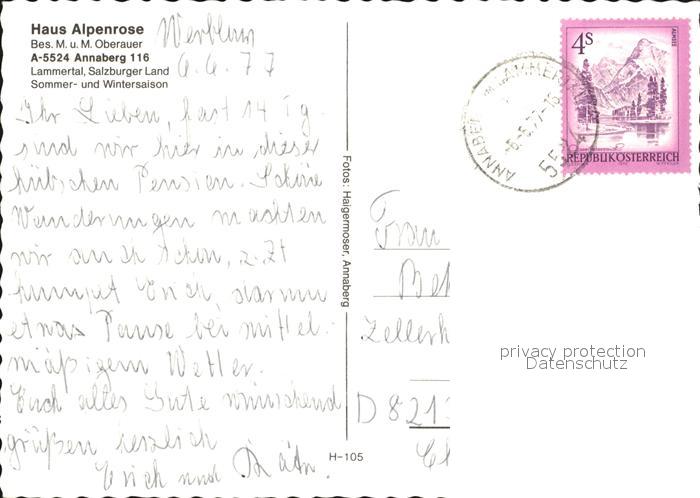 Haus Alpenrose
Bes. M. u. M. Oberauer
A-5524 Annaberg 116
Lammertal, Salzburger Land
Sommer- und Wintersaison
6.6.77
Ihr Lieben, fast 14 Tg.
sind wir hier in dieser
hübschen Pension. Schöne
Wanderungen machten
wir auch schon, z. Zt
humpelt Erich, darum
etwas Pause bei mittel-
mäßigem Wetter.
Euch alles Gute wünschend
grüßen herzlich
Erich und
Fotos: Haigermoser, Annaberg
H-105
4S
ALMSEE
REPUBLIK ÖSTERREICH
ANNABERG IM LAMMERTAL
-6.-6.77-16
5524
Frau
Zellerh
D 821
privacy protection
Datenschutz